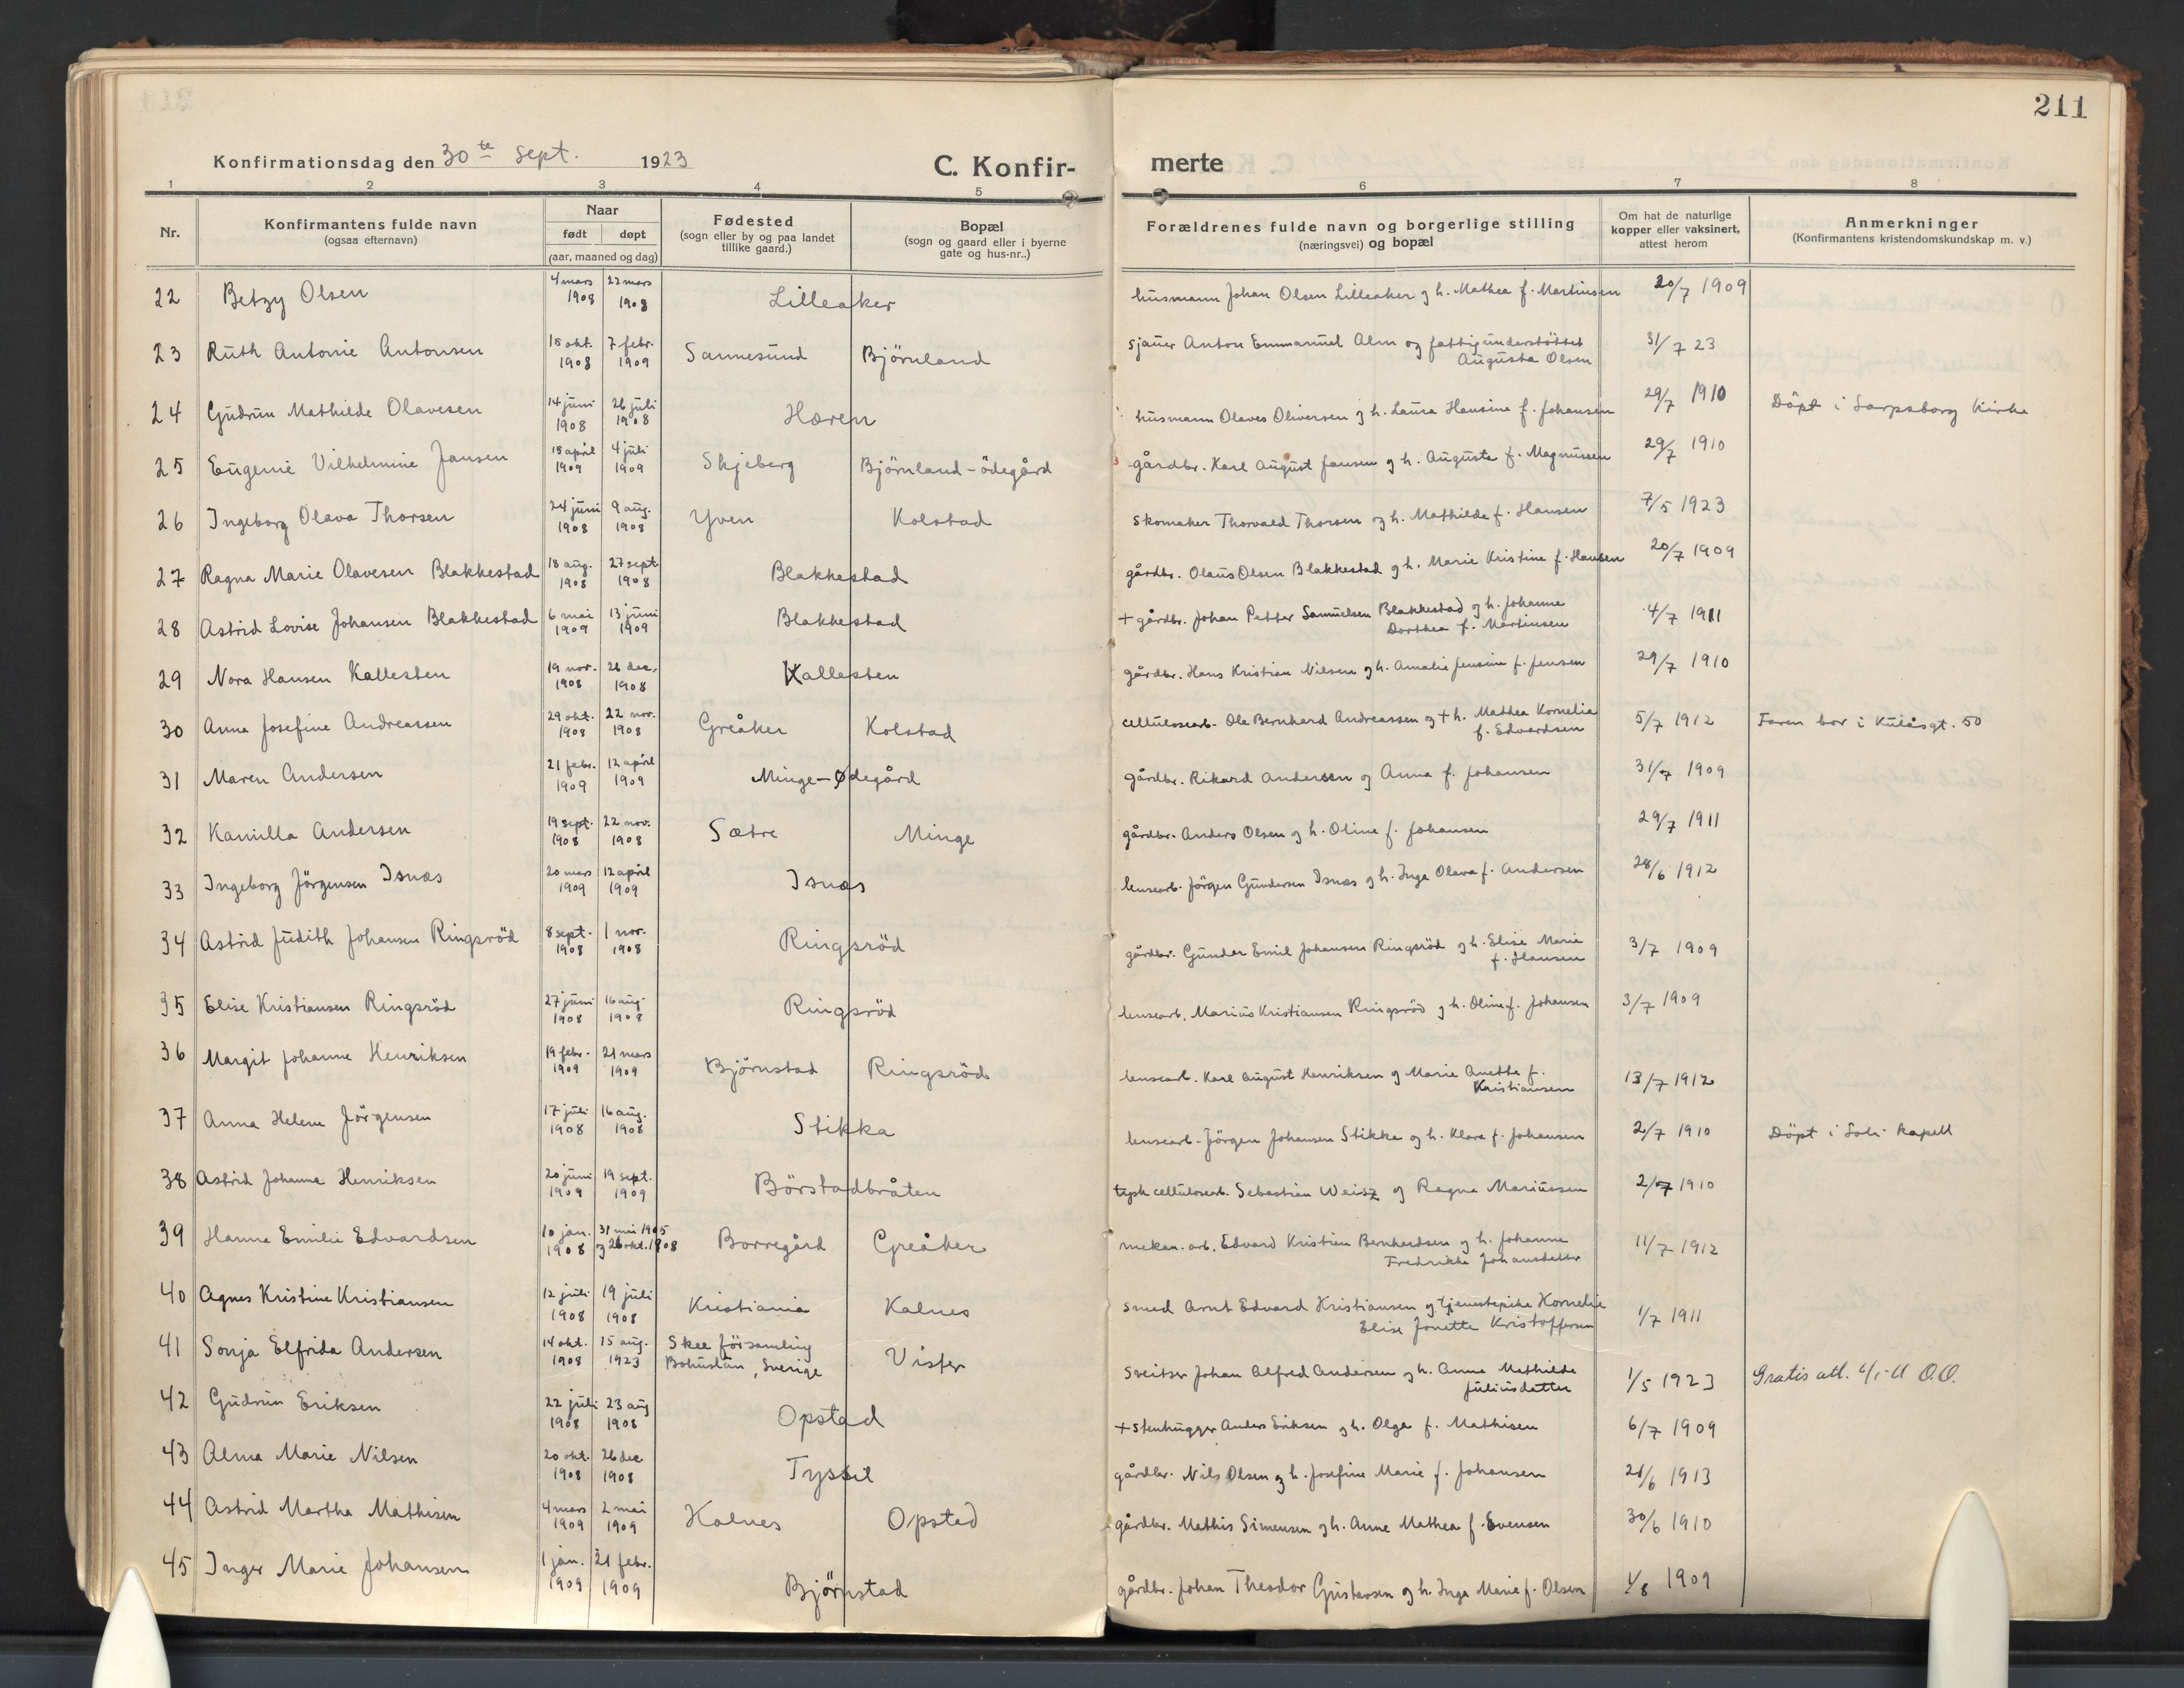 211
Konfirmationsdag den 30te sept. 1923
C. Konfir- merte
1 2 3 4 5 6 7 8
Nr.
Konfirmantens fulde navn
(ogsaa efternavn)
Naar
født døpt
(aar, maaned og dag)
Fødested
(sogn eller by og paa landet
tillike gaard.)
Bopæl
(sogn og gaard eller i byerne
gate og hus-nr..)
Forældrenes fulde navn og borgerlige stilling
(næringsvei) og bopæl
Om hat de naturlige
kopper eller vaksinert,
attest herom
Anmerkninger
(Konfirmantens kristendomskundskap m. v.)
22 Betzy Olsen 4 mars 1908 22 mars 1908 Lilleaker husmann Johan Olsen Lilleaker og h. Mathea f. Martinsen 20/7 1909
23 Ruth Antonie Antonsen 15 okt. 1908 7 febr. 1909 Sannesund Björnland sjauer Anton Emmanuel Alm og fattigunderstöttet
Augusta Olsen 31/7 23
24 Gudrun Mathilde Olavesen 14 juni 1908 26 juli 1908 Hæren husmann Olaves Oliversen og h. Laura Hansine f. Johansen 29/7 1910 Döpt i Sarpsborg Kirke
25 Eugenie Vilhelmine Jansen 15 april 1909 4 juli 1909 Skjeberg Björnland-ödegård gårdbr. Karl August Jansen og h. Augusta f. Magnussen 29/7 1910
26 Ingeborg Olava Thorsen 24 juni 1908 9 aug. 1908 Yven Kolstad Skomaker Thorvald Thorsen og h. Mathilde f. Hansen 7/5 1923
27 Ragna Marie Olavesen Blakkestad 18 aug. 1908 27 sept. 1908 Blakkestad gårdbr. Olaus Olsen Blakkestad og h. Marie Kristine f. Hansen 20/7 1909
28 Astrid Lovise Johansen Blakkestad 6 mai 1909 13 juni 1909 Blakkestad + gårdbr. Johan Petter Samuelsen Blakkestad og h. Johanne
Dorthea f. Martinsen 4/7 1911
29 Nora Hansen Kallesten 19 nov. 1908 26 des. 1908 Kallesten gårdbr. Hans Kristian Nilsen og h. Amalie Jensine f. Jensen 29/7 1910
30 Anna Josefine Andreassen 29 okt. 1908 22 nov. 1908 Greåker Kolstad cellulosearb. Ole Bernhard Andreassen og + h. Mathea Kornelia
f. Edvardsen 5/7 1912 Faren bor i Kulåsgt. 50
31 Maren Andersen 21 febr. 1909 12 april 1909 Minge-Ødegård gårdbr. Rikard Andersen og Anna f. Johansen 31/7 1909
32 Kamilla Andersen 19 sept. 1908 22 nov. 1908 Sætre Minge gårdbr. Anders Olsen og h. Oline f. Johansen 29/7 1911
33 Ingeborg Jörgensen Isnæs 20 mars 1909 12 april 1909 Isnæs lensearb. Jörgen Gundersen Isnæs og h. Inga Olava f. Andersen 28/6 1912
34 Astrid Judith Johansen Ringsröd 8 sept. 1908 1 nov. 1908 Ringsröd gårdbr. Gunder Emil Johansen Ringsröd og h. Elise Marie
f. Hansen 3/7 1909
35 Elise Kristiansen Ringsröd 27 juni 1908 16 aug. 1908 Ringsröd lensearb. Marius Kristiansen Ringsröd og h. Oline f. Johansen 3/7 1909
36 Margit Johanne Henriksen 19 febr. 1909 21 mars 1909 Björnstad Ringsröd lensearb. Karl August Henriksen og Marie Anette f.
Kristiansen 13/7 1912
37 Anna Helene Jörgensen 17 juli 1908 16 aug. 1908 Stikka lensearb. Jörgen Johansen Stikka og h. Klara f. Johansen 2/7 1910 Döpt i Soli kapell
38 Astrid Johanne Henriksen 20 juni 1909 19 sept. 1909 Börstadbråten tysk cellulosearb. Sebastian Weisz og Ragna Mariussen 2/7 1910
39 Hanna Emilie Edvardsen 10 jan. 1908 31 mai 1905 og 26 okt. 1908 Borregård Greåker mekan. arb. Edvard Kristian Bernhardsen og h. Johanne
Fredrikke Johansdatter 11/7 1912
40 Agnes Kristine Kristiansen 12 juli 1908 19 juli 1908 Kristiania Kalnes Smed Arnt Edvard Kristiansen og tjenestepike Kornelie
Elise Jonette Kristoffersen 1/7 1911
41 Sonja Elfrida Andersen 14 okt. 1908 15 aug. 1923 Skee församling
Bohuslän, Sverige Vister Sveitser Johan Alfred Andersen og h. Anna Mathilde
Juliusdatter 1/5 1923 Gratis att. O.O.
42 Gudrun Eriksen 22 juli 1908 23 aug 1908 Opstad + Stenhugger Anders Eriksen og h. Olga f. Mathisen 6/7 1909
43 Alma Marie Nilsen 20 okt. 1908 26 des 1908 Tyssil gårdbr. Nils Olsen og h. Josefine Marie f. Johansen 21/6 1913
44 Astrid Martha Mathisen 4 mars 1909 2 mai 1909 Kalnes Opstad gårdbr. Mathis Simensen og h. Anne Mathea f. Evensen 30/6 1910
45 Inger Marie Johansen 1 jan. 1909 21 febr. 1909 Bjørnstad gårdbr. Johan Theodor Gustavsen og h. Inga Marie f. Olsen 1/8 1909